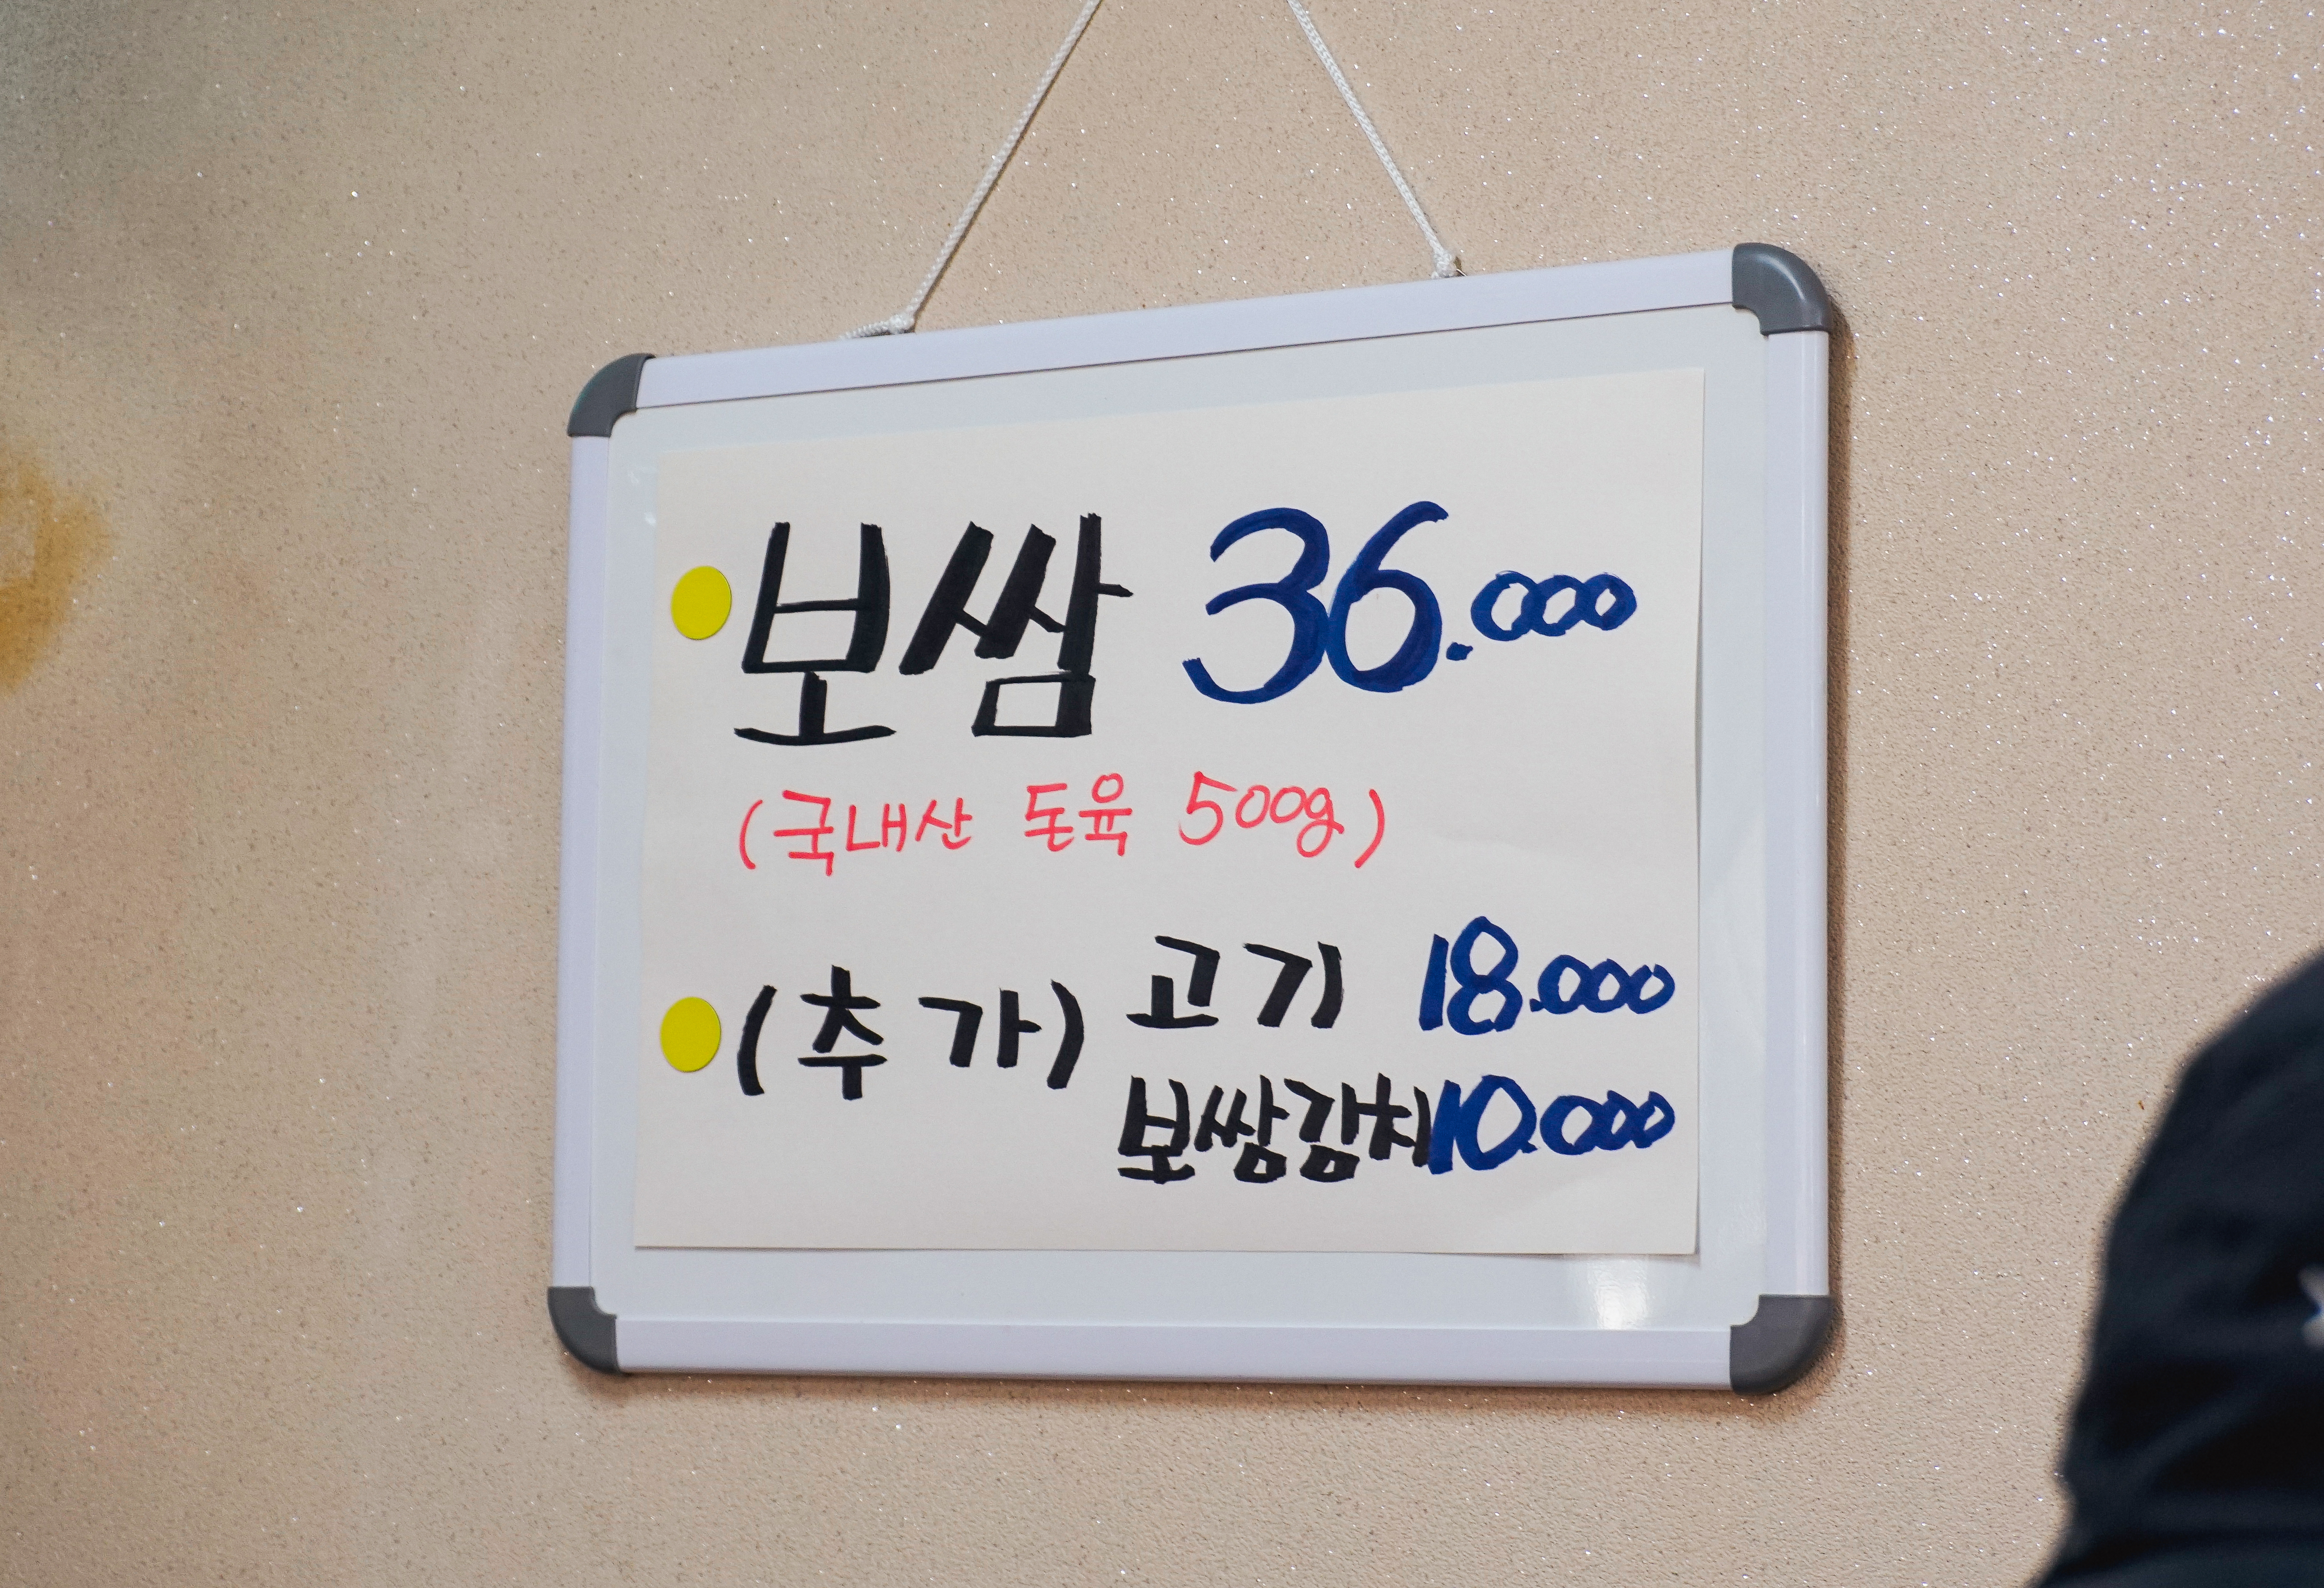 보쌈 36.000
(국내산 돈육 500g)
(추가) 고기 18.000
보쌈김치 10.000